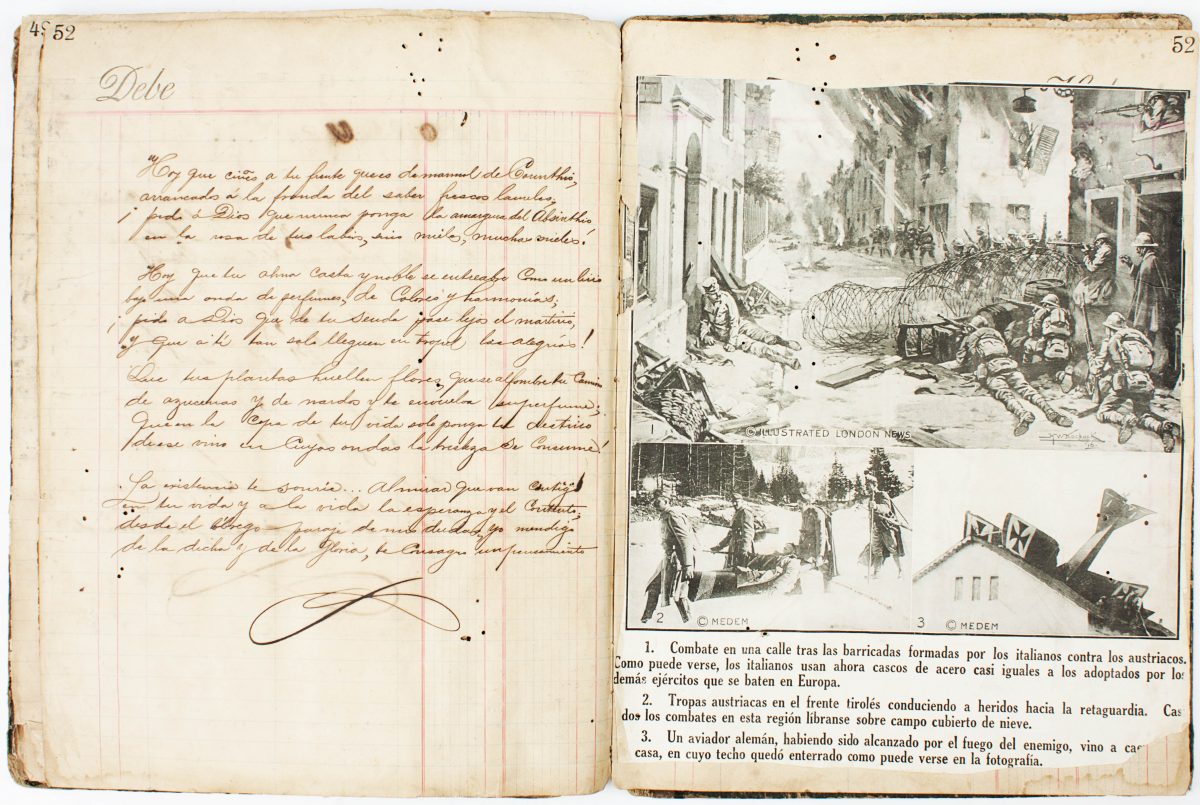 49
52
Debe
"Hoy que ciñes a tu frente que es de marmol de Corinthio,
arrancados á la fronda del saber frescos laureles,
¡pido á Dios que nunca ponga la amargura del Absinthio
en la rosa de tus labios, sino mieles, muchas mieles!
Hoy que tu alma casta y noble se entreabre como un lirio
bajo una onda de perfumes, de colores y harmonias;
¡pido a Dios que de tu senda pase lejos el martirio,
y que a tí tan solo lleguen en tropel las alegrias!
Que tus plantas huellen flores, que se alfombre tu camino
de azucenas y de nardos y te envuelva su perfume;
que en la copa de tu vida solo ponga tu destino
ese vino en cuyas ondas la tristeza se consume!
La existencia te sonrie... al mirar que van contigo
en tu vida y a la vida la esperanza y el contento,
desde el paraje de mis dudas, yo mendigo
de la dicha y de la gloria, te consagro un pensamiento
52
1
© ILLUSTRATED LONDON NEWS
2
© MEDEM
3
© MEDEM
1. Combate en una calle tras las barricadas formadas por los italianos contra los austriacos.
Como puede verse, los italianos usan ahora cascos de acero casi iguales a los adoptados por los
demás ejércitos que se baten en Europa.
2. Tropas austriacas en el frente tirolés conduciendo a heridos hacia la retaguardia. Cas
dos los combates en esta región líbranse sobre campo cubierto de nieve.
3. Un aviador alemán, habiendo sido alcanzado por el fuego del enemigo, vino a cae
casa, en cuyo techo quedó enterrado como puede verse en la fotografía.